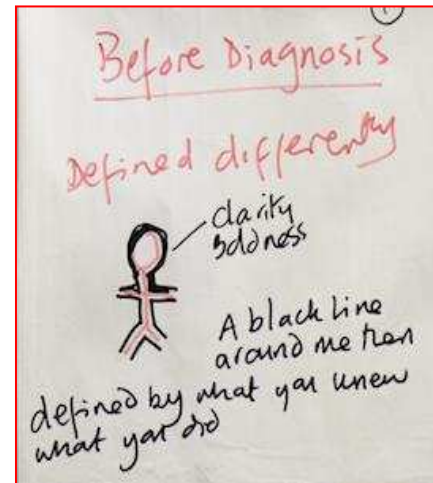 Before Diagnosis
Defined differently
clarity
boldness
A black line
around me then
defined by what you knew
what you did